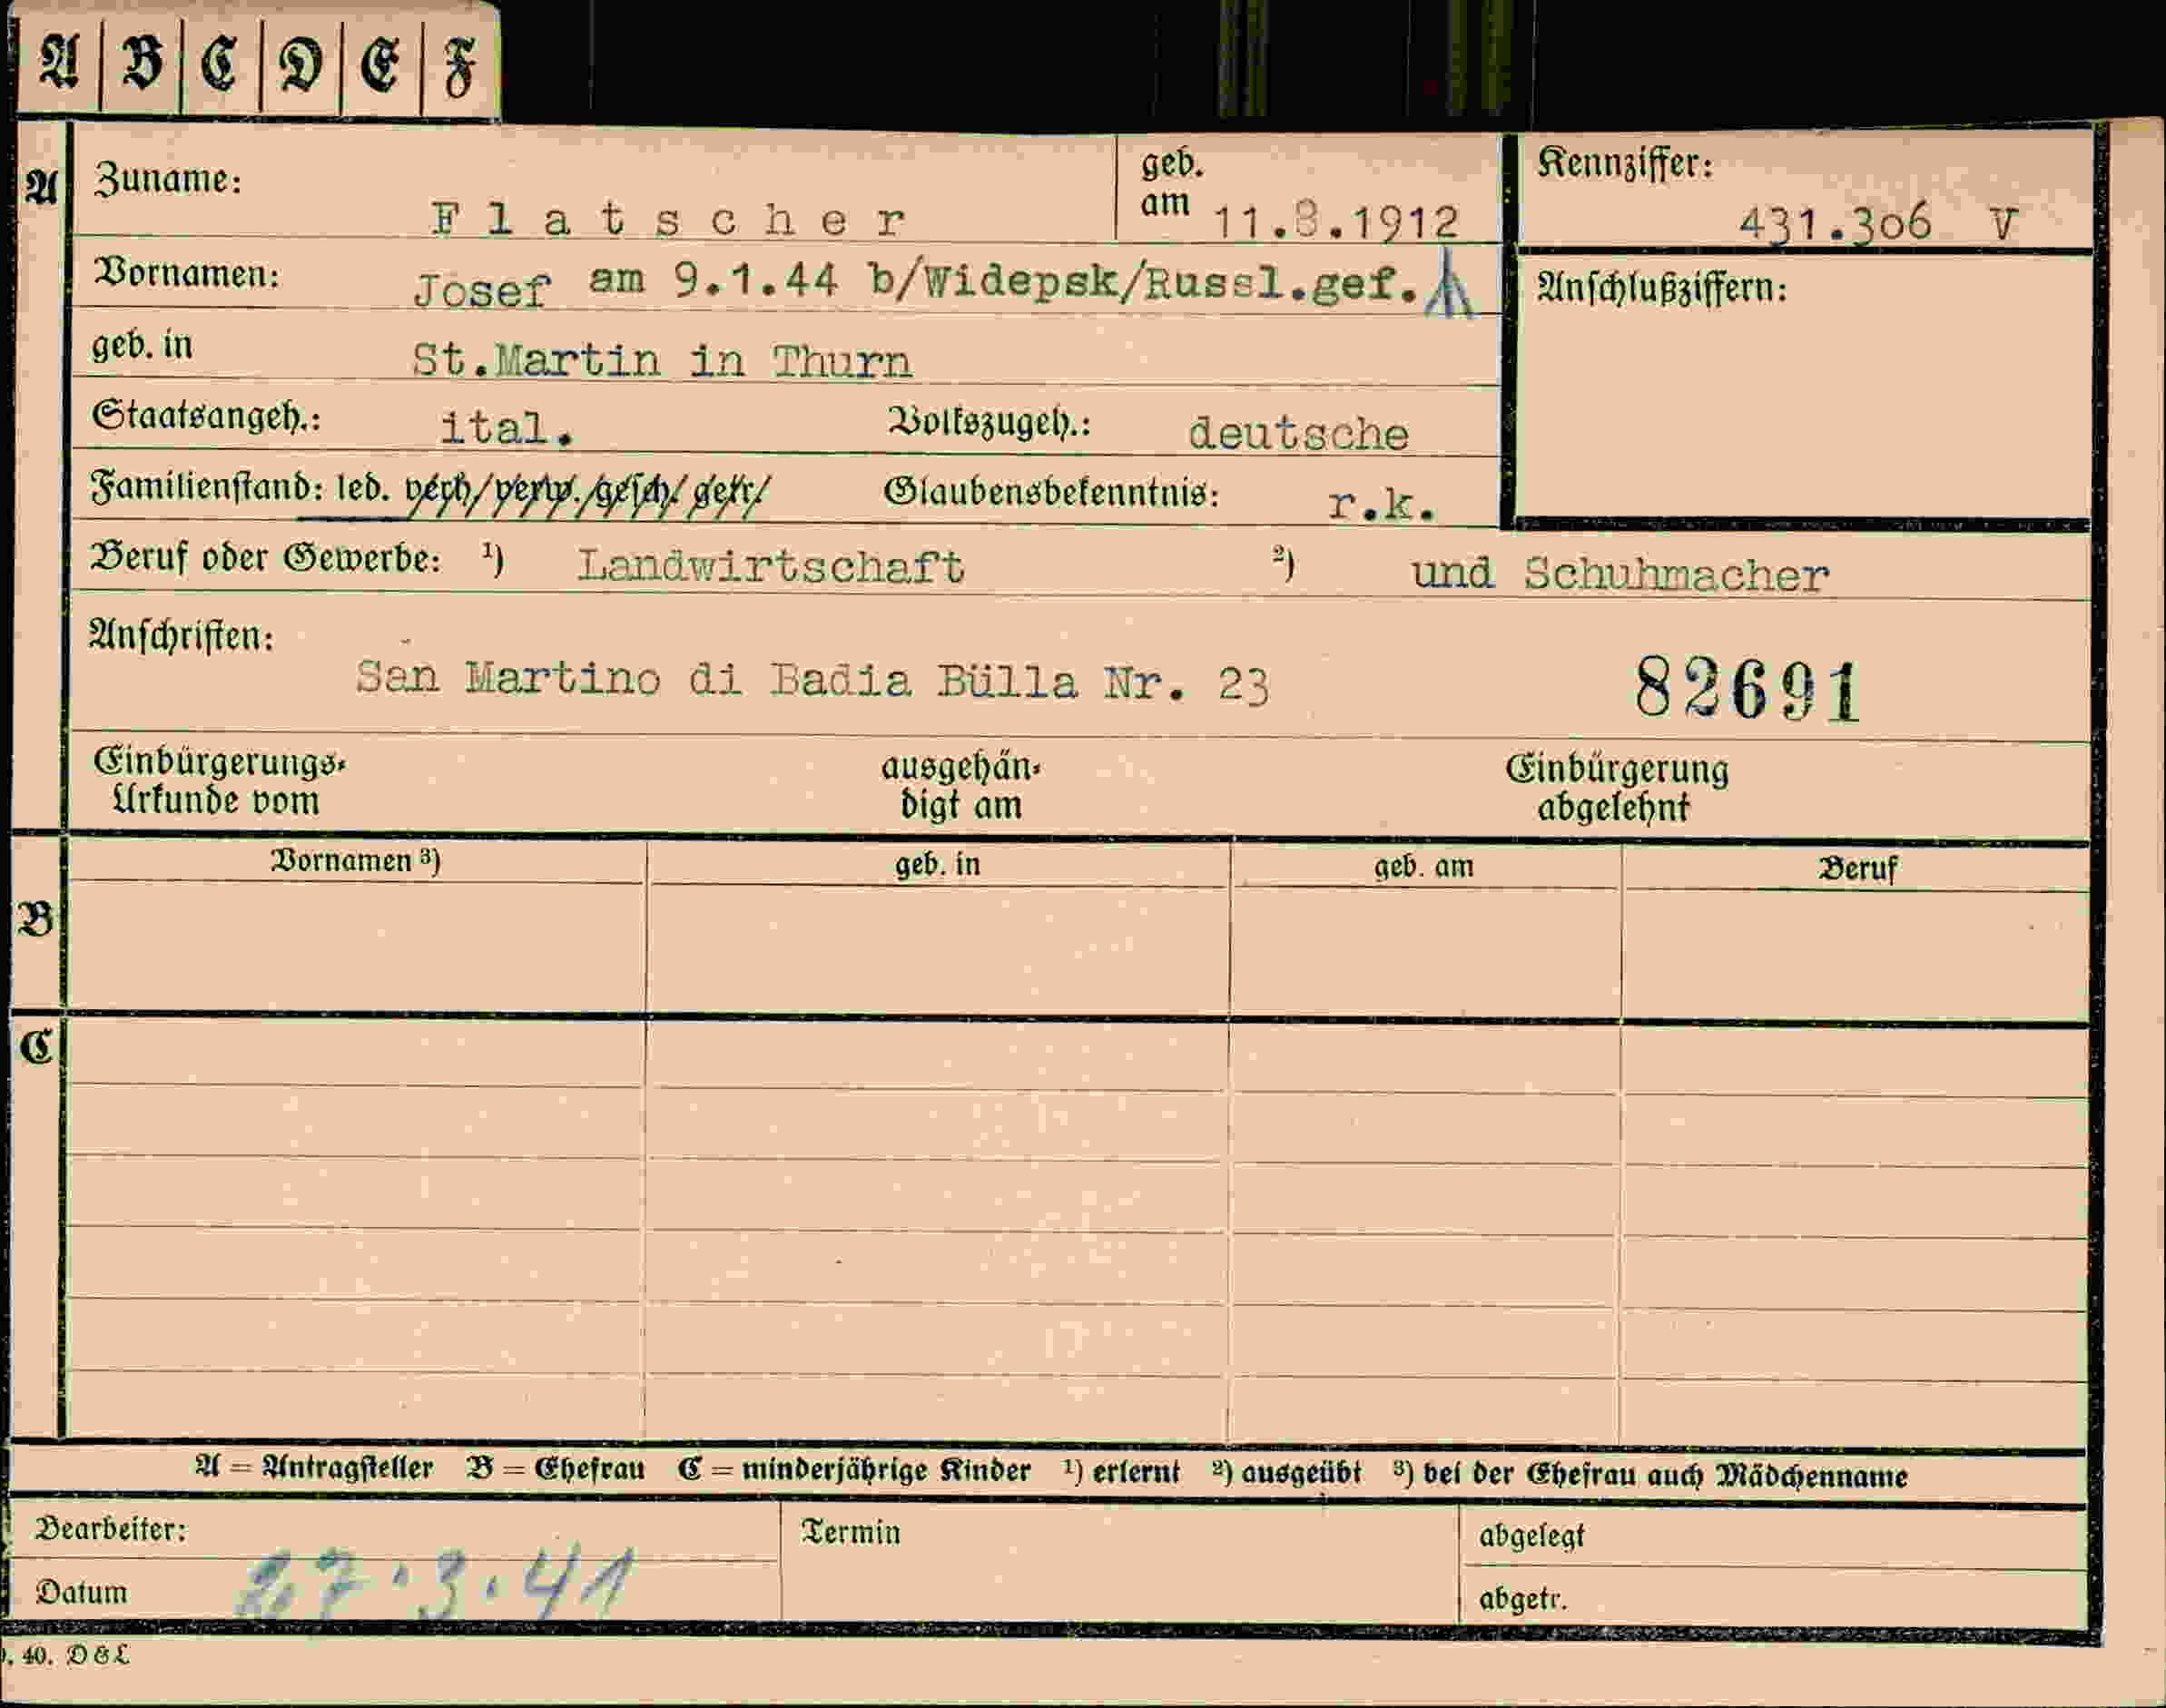 A B C D E F
A Zuname: Flatscher geb. am 11.8.1912 Kennziffer: 431.306 V
Vornamen: Josef am 9.1.44 b/Widepsk/Russl.gef. Anschlußziffern:
geb. in St.Martin in Thurn
Staatsangeh.: ital. Volkszugeh.: deutsche
Familienstand: led. verh/verw./gesch/getr/ Glaubensbekenntnis: r.k.
Beruf oder Gewerbe: 1) Landwirtschaft 2) und Schuhmacher
Anschriften:
San Martino di Badia Bülla Nr. 23 82691
Einbürgerungs- ausgehän- Einbürgerung
Urkunde vom digt am abgelehnt
Vornamen 3) geb. in geb. am Beruf
B
C
A = Antragsteller B = Ehefrau C = minderjährige Kinder 1) erlernt 2) ausgeübt 3) bei der Ehefrau auch Mädchenname
Bearbeiter: Termin abgelegt
Datum 27.3.41 abgetr.
. 40. D & L